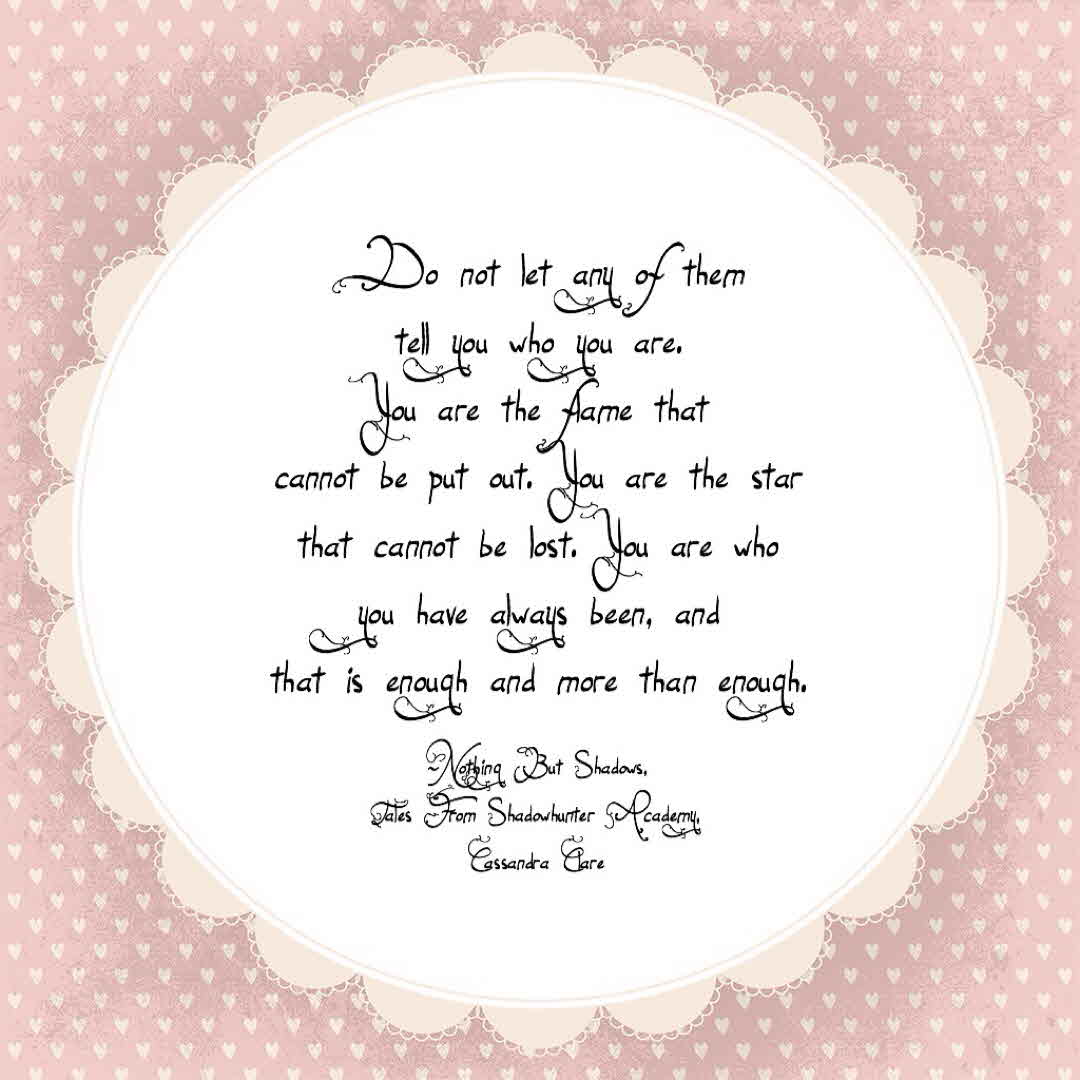 Do not let any of them
tell you who you are.
You are the flame that
cannot be put out. You are the star
that cannot be lost. You are who
you have always been, and
that is enough and more than enough.
~Nothing But Shadows,
Tales From Shadowhunter Academy,
Cassandra Clare